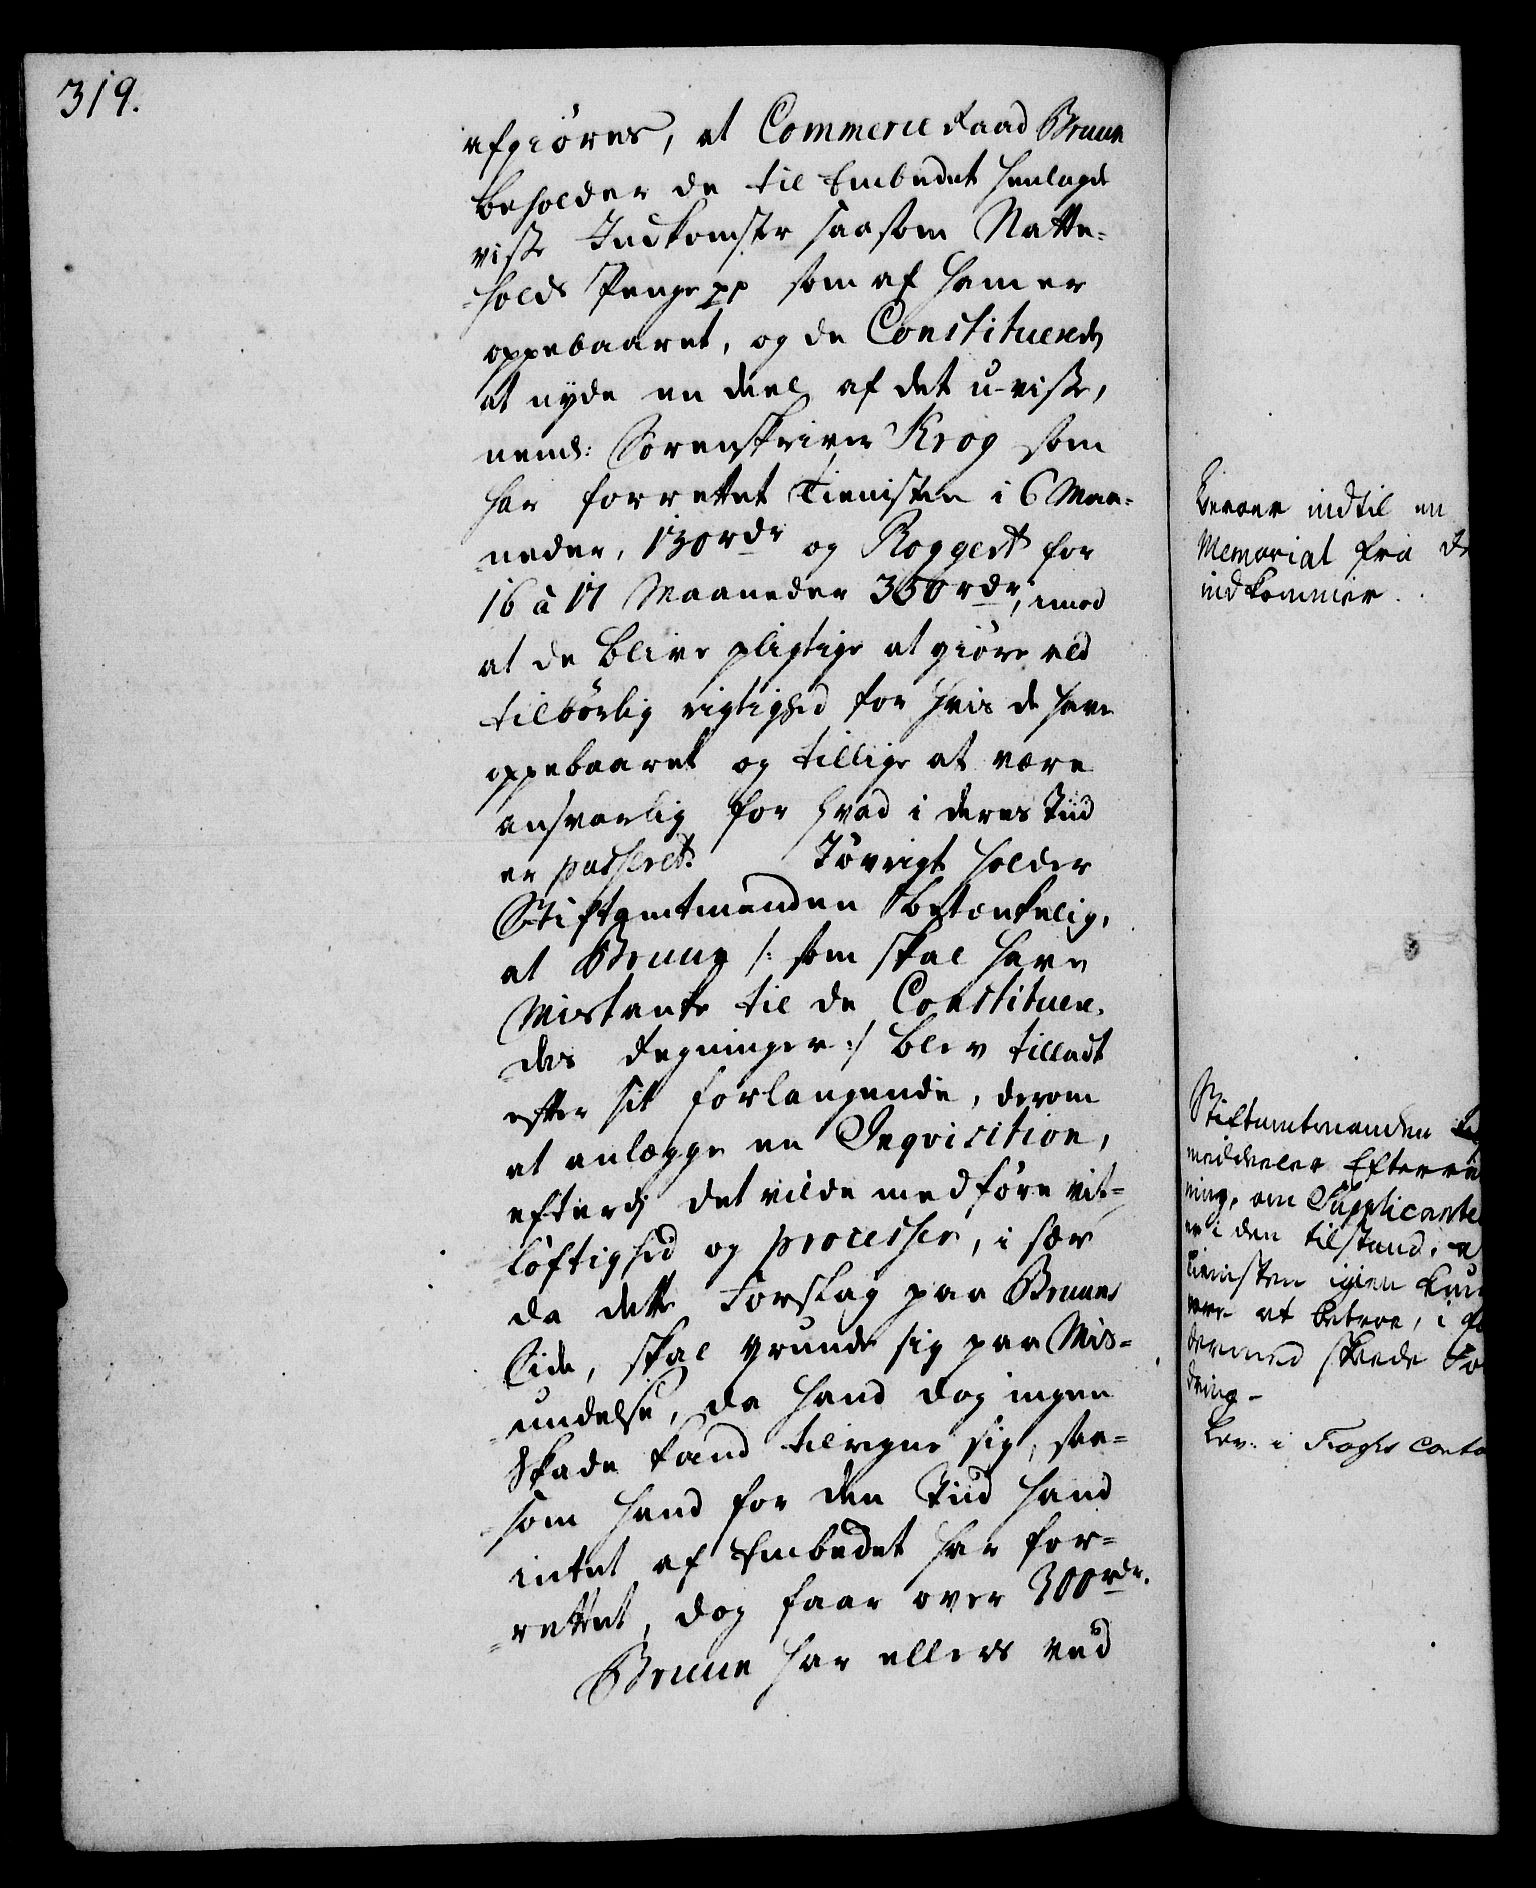 319.
afgiøres, at Commerce Raad Bruun
beholder de til Embedet henlagde
visse Indkomster saasom Natte-
-holds Penge pp som af ham er
oppebaaret, og de Constituerede
at nyde en deel af det u-visse,
neml: Sorenskriver Krog som
har forrettet Tienisten i 6 Maa-
-neder, 130 rdr og Roggert for
16 à 17 Maaneder 350 rdr, imod
at de blive pligtige at giøre all
tilbørlig rigtighed for hvis de have
oppebaaret og tillige at være
ansvarlig for hvad i deres Tiid
er passeret. Iøvrigt holder
Stiftamtmanden betænkelig,
at Bruun /: som skal have
Mistanke til de Constituere-
-des Regninger :/ blev tilladt
efter sit forlangende, derom
at anlægge en Inqvisition,
efterdj det vilde medføre vit-
løftighed og processer, i sær
da dette Forslag paa Bruuns
Side, skal grunde sig paa Mis-
-undelse, da hand dog ingen
skade kand tilregne sig, saa-
-som hand for den Tiid hand
intet af Embedet har for-
-rettet, dog faar over 300 rdr.
Bruun har ellers ved
beroer indtil en
Memorial fra
indkommer.
Stiftamtmanden
meddeeler Efterret
ning, om Supplicanten
er i den tilstand, a
Tienisten igien kun
være at betroe, i
dermed skeede
dring -
Lev: i Foghs Conto